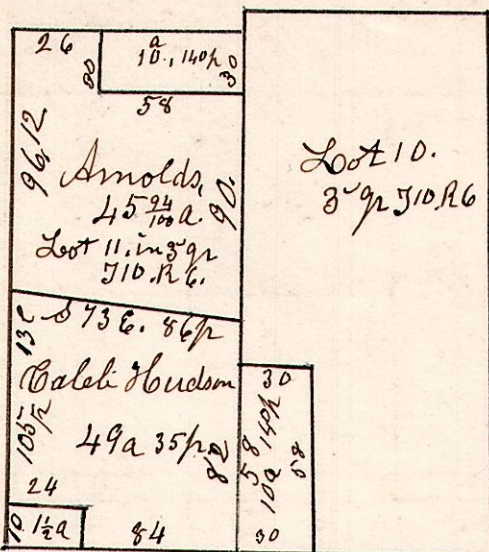 26
80
10a, 140p
30
58
96,12
Arnolds,
45 94/100 a.
90.
Lot 11. in 3d qr
T10. R 6.
Lot 10.
3d qr T10, R6
S 73 E. 86p
Caleb Hudson
105p
49a 35p
82
24
10
1½ a
84
30
58
10a 140p
58
30